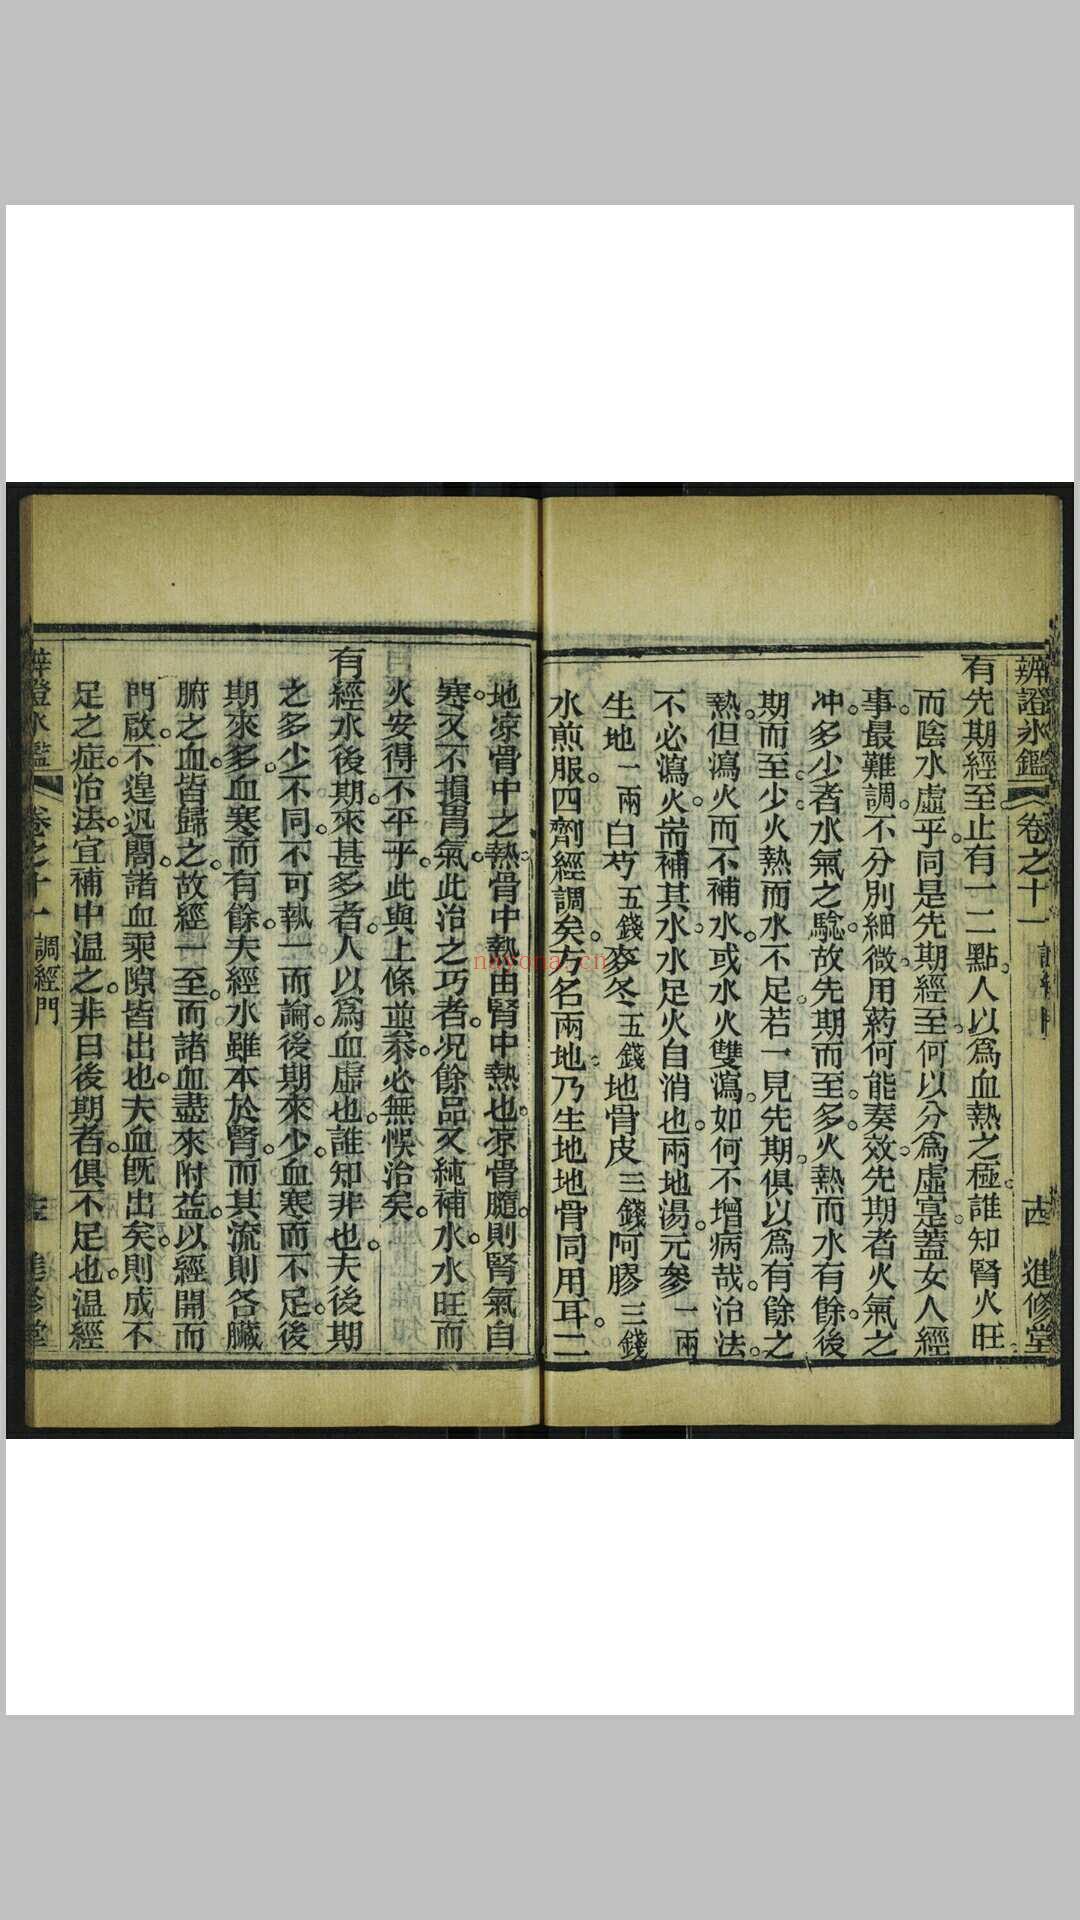 辨證氷鑑 卷之十一 調經門 十四 進修堂
有先期經至止有一二點人以爲血熱之極誰知腎火旺
而陰水虛乎同是先期經至何以分爲虛寔蓋女人經
事最難調不分別細微用葯何能奏效先期者火氣之
冲多少者水氣之騐故先期而至多火熱而水有餘後
期而至少火熱而水不足若一見先期俱以爲有餘之
熱但瀉火而不補水或水火雙瀉如何不增病哉治法
不必瀉火耑補其水水足火自消也兩地湯元參一兩
生地一兩白芍五錢麥冬五錢地骨皮三錢阿膠三錢
水煎服四劑經調矣方名兩地乃生地地骨同用耳二
地凉骨中之熱骨中熱由腎中熱也凉骨髓則腎氣自
寒又不損胃氣此治之巧者况餘品又純補水水旺而
火安得不平乎此與上條並叅必無悞治矣
有經水後期來甚多者人以爲血虛也誰知非也夫後期
之多少不同不可執一而論後期來少血寒而不足後
期來多血寒而有餘夫經水雖本於腎而其流則各臟
腑之血皆歸之故經一至而諸血盡來附益以經開而
門啟不遑迅閤諸血乘隙皆出也夫血既出矣則成不
足之症治法宜補中温之非曰後期者俱不足也温經
辨證氷鑑 卷之十一 調經門 進修堂
nayona.cn